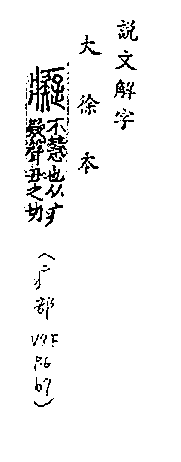 説文解字
大徐本
癡不慧也从疒
疑聲丑之切
(疒部
V7F
P6
b7)